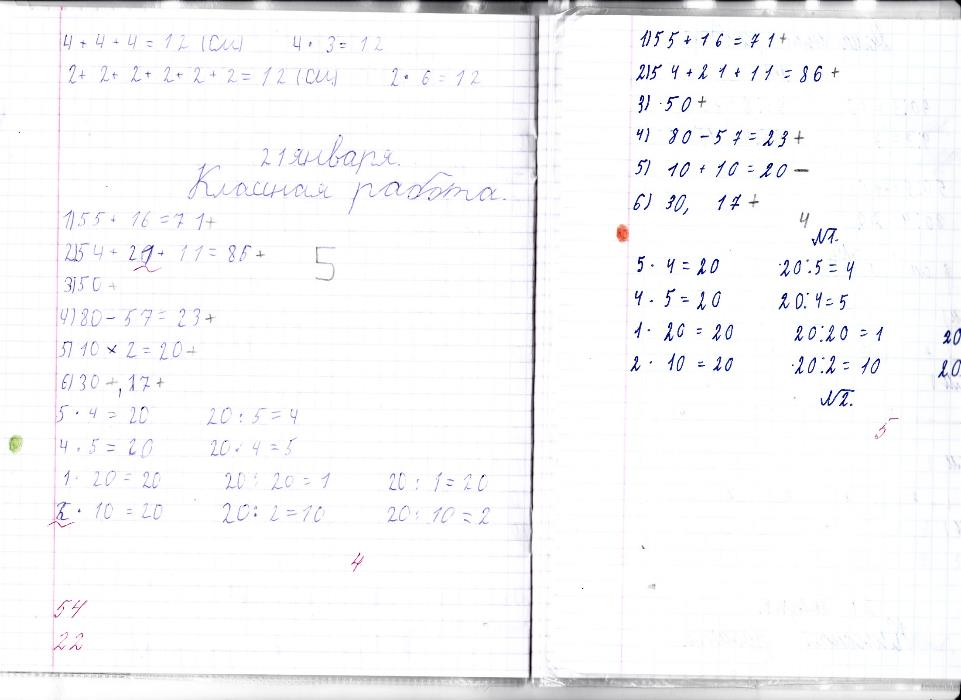 4 + 4 + 4 = 12 (см) 4 · 3 = 12
2 + 2 + 2 + 2 + 2 + 2 = 12 (см) 2 · 6 = 12
21 января.
Классная работа.
1) 55 + 16 = 71 +
2) 54 + 21 + 11 = 86 + 5
3) 50 +
4) 80 - 57 = 23 +
5) 10 × 2 = 20 +
6) 30 +, 17 +
5 · 4 = 20 20 : 5 = 4
4 · 5 = 20 20 : 4 = 5
1 · 20 = 20 20 : 20 = 1 20 : 1 = 20
2 · 10 = 20 20 : 2 = 10 20 : 10 = 2
4
54
22
1) 55 + 16 = 71 +
2) 54 + 21 + 11 = 86 +
3) 50 +
4) 80 - 57 = 23 +
5) 10 + 10 = 20 -
6) 30, 17 +
4
№1.
5 · 4 = 20 20 : 5 = 4
4 · 5 = 20 20 : 4 = 5
1 · 20 = 20 20 : 20 = 1 20
2 · 10 = 20 20 : 2 = 10 20
№2.
5